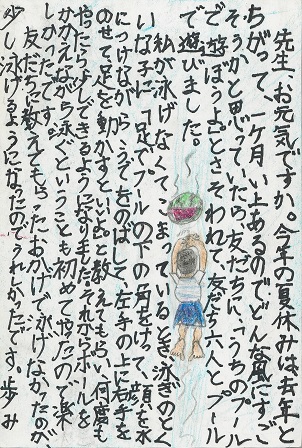 先生、お元気ですか。今年の夏休みは去年と
ちがって、一ケ月い上あるのでどんな風にすご
そうかと思っていたら友だちに「うちのプール
で遊ぼうよ」とさそわれて、友だち六人とプール
で遊びました。
私が泳げなくてこまっているとき泳ぎのとく
いな子に「足でプールの下の角をけって、顔を水
につけながら、うでをのばして左手の上に右手を
のせて足を動かすといいよ」と教えてもらい、何度も
やったら少しできるようになりました。それからボールを
かかえながら泳ぐということも初めてやったので楽
しかったです。
友だちに教えてもらったおかげで泳げなかったが、
少し泳げるようになったのでうれしかったです。歩み